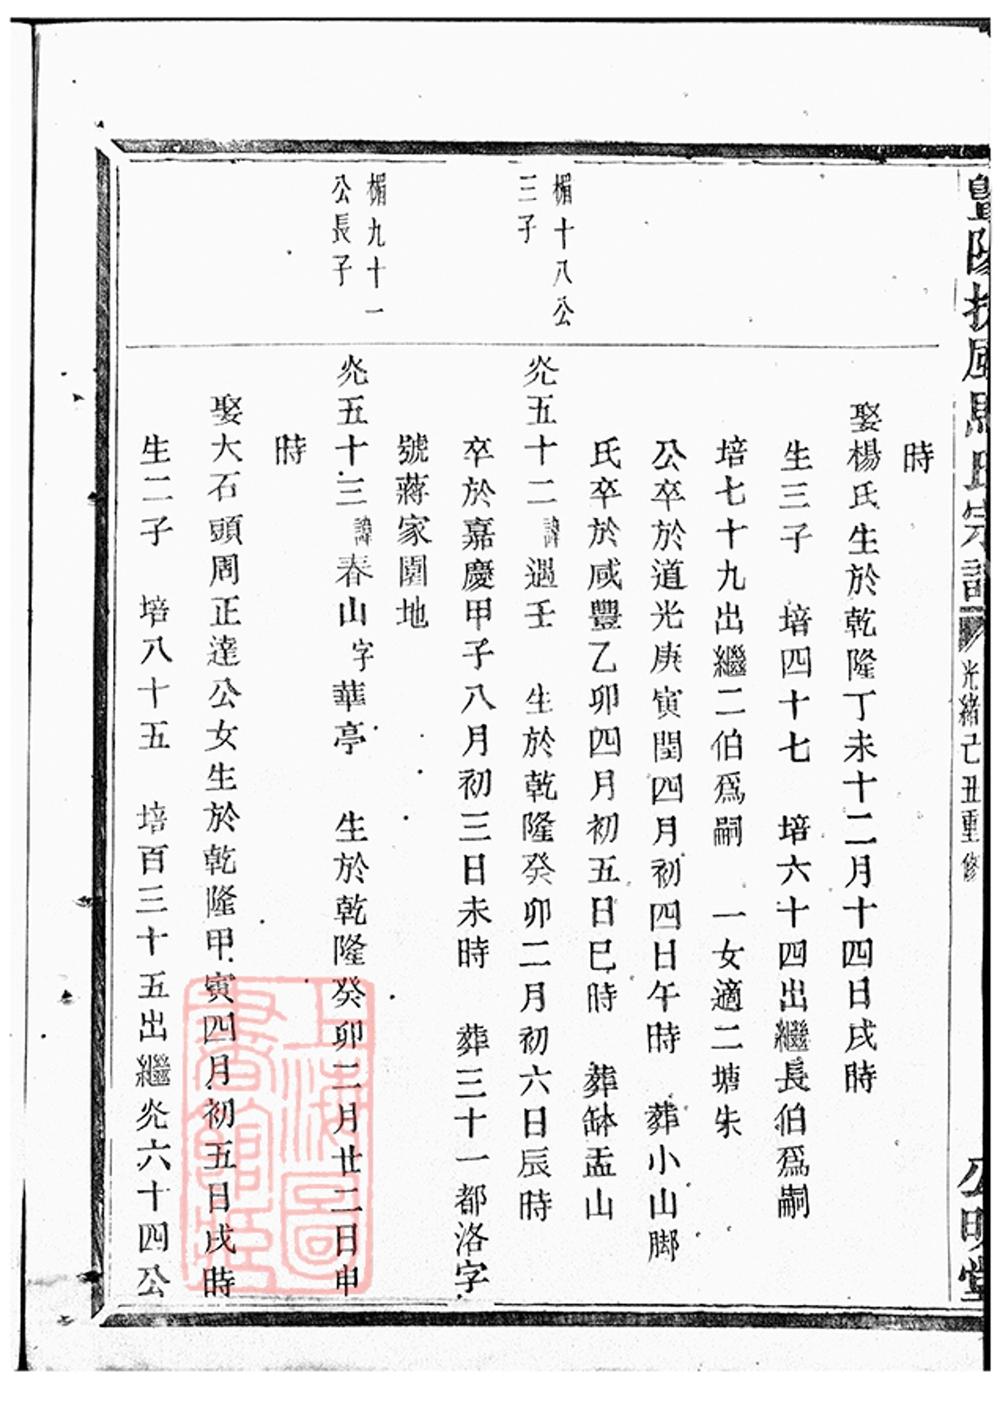 暨陽扶風馬氏宗譜
光緒己丑重修
公明堂
時
娶楊氏生於乾隆丁未十二月十四日戌時
生三子 培四十七 培六十四出繼長伯爲嗣
培七十九出繼二伯爲嗣 一女適二塘朱
公卒於道光庚寅閏四月初四日午時 葬小山脚
氏卒於咸豐乙卯四月初五日巳時 葬鉢盂山
楣十八公
三子
炛五十二諱遇壬 生於乾隆癸卯二月初六日辰時
卒於嘉慶甲子八月初三日未時 葬三十一都洛字
號蔣家園地
楣九十一
公長子
炛五十三諱春山字華亭 生於乾隆癸卯二月廿二日申
時
娶大石頭周正達公女生於乾隆甲寅四月初五日戌時
生二子 培八十五 培百三十五出繼炛六十四公
上海圖書館藏